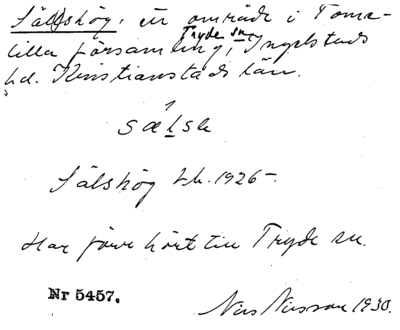 Sälshög, ett område i Toma-
lilla församling, Tryde sn Ingelstads
hd. Kristianstads län.
sælsh
Sälshög Jb. 1926-
Har förr hört till Tryde sn.
Nr 5457.
Nils Nilsson 1930.